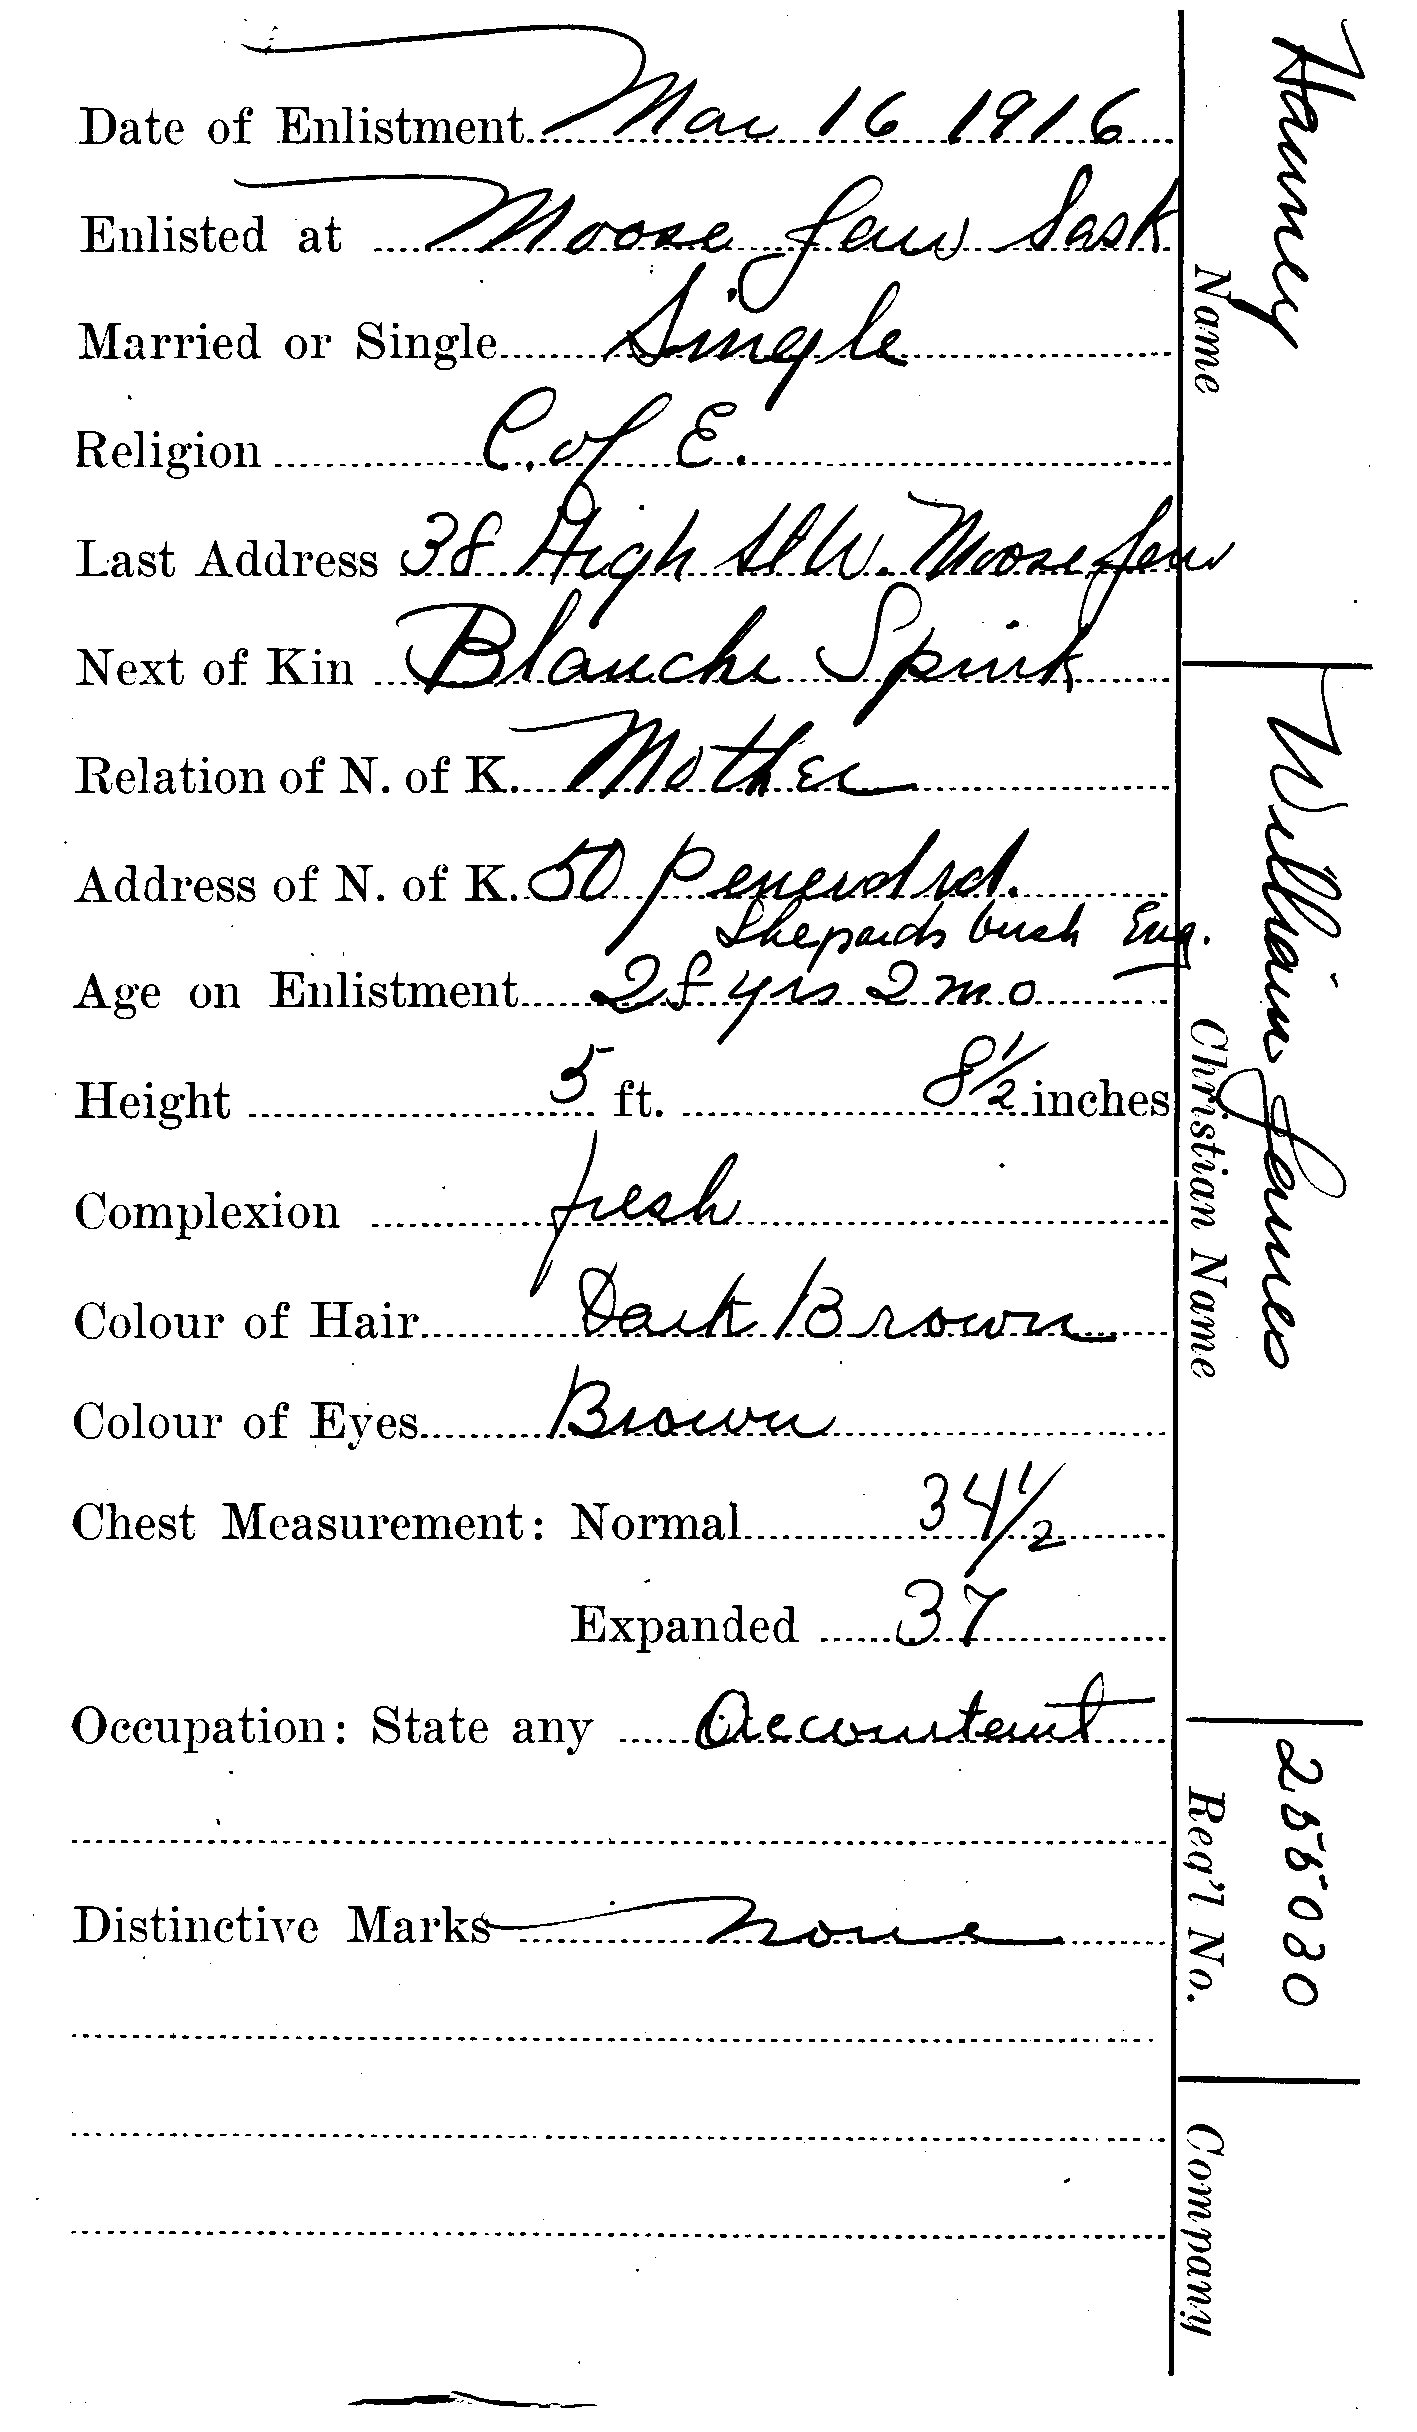 Date of Enlistment Mar 16 1916
Enlisted at Moose Jaw Sask
Married or Single Single
Religion C. of E.
Last Address 38 High St W. Moose Jaw
Next of Kin Blanche Spink
Relation of N. of K. Mother
Address of N. of K. 50 rd.
Shepards bush Eng.
Age on Enlistment yrs 2 mo
Height 5 ft. 8½ inches
Complexion fresh
Colour of Hair Dark Brown
Colour of Eyes Brown
Chest Measurement: Normal 34½
Expanded 37
Occupation: State any Accountant
Distinctive Marks none
Hanney
Name
William James
Christian Name
255080
Reg'l No.
Company